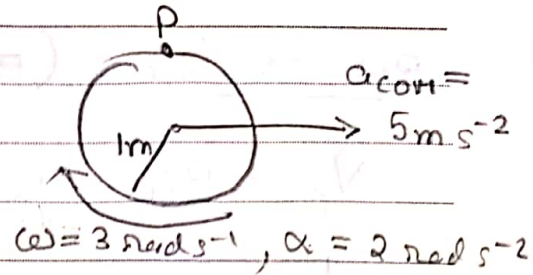 P
a_COM =
5 m s⁻²
1m
ω = 3 rad s⁻¹, α = 2 rad s⁻²